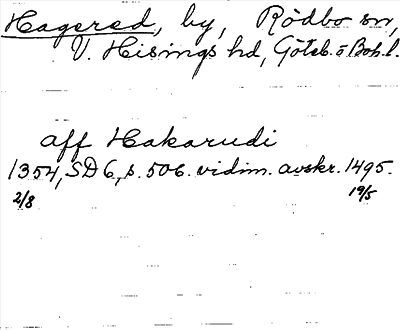 Hagered, by, Rödbo sn,
V. Hisings hd, Göteb. o Boh. l.
aff Hakarudi
1354, SD 6, s. 506. vidim. avskr. 1495.
2/8 19/5